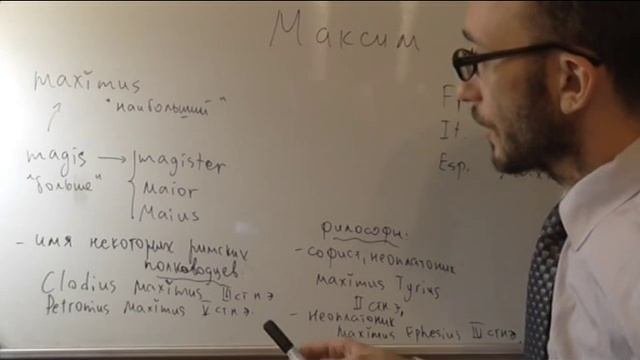 Максим
maxĭmus
"наибольший"
magis → magister
"больше" Maior
Maius
- имя некоторых римских
полководцев
Clodius Maxĭmus II ст н.э
Petronius Maxĭmus V ст н.э.
It.
Esp.
философы.
- софист, неоплатоник
Maxĭmus Tyrius
II ст н.э,
- неоплатоник
Maxĭmus Ephesius IV ст н.э.